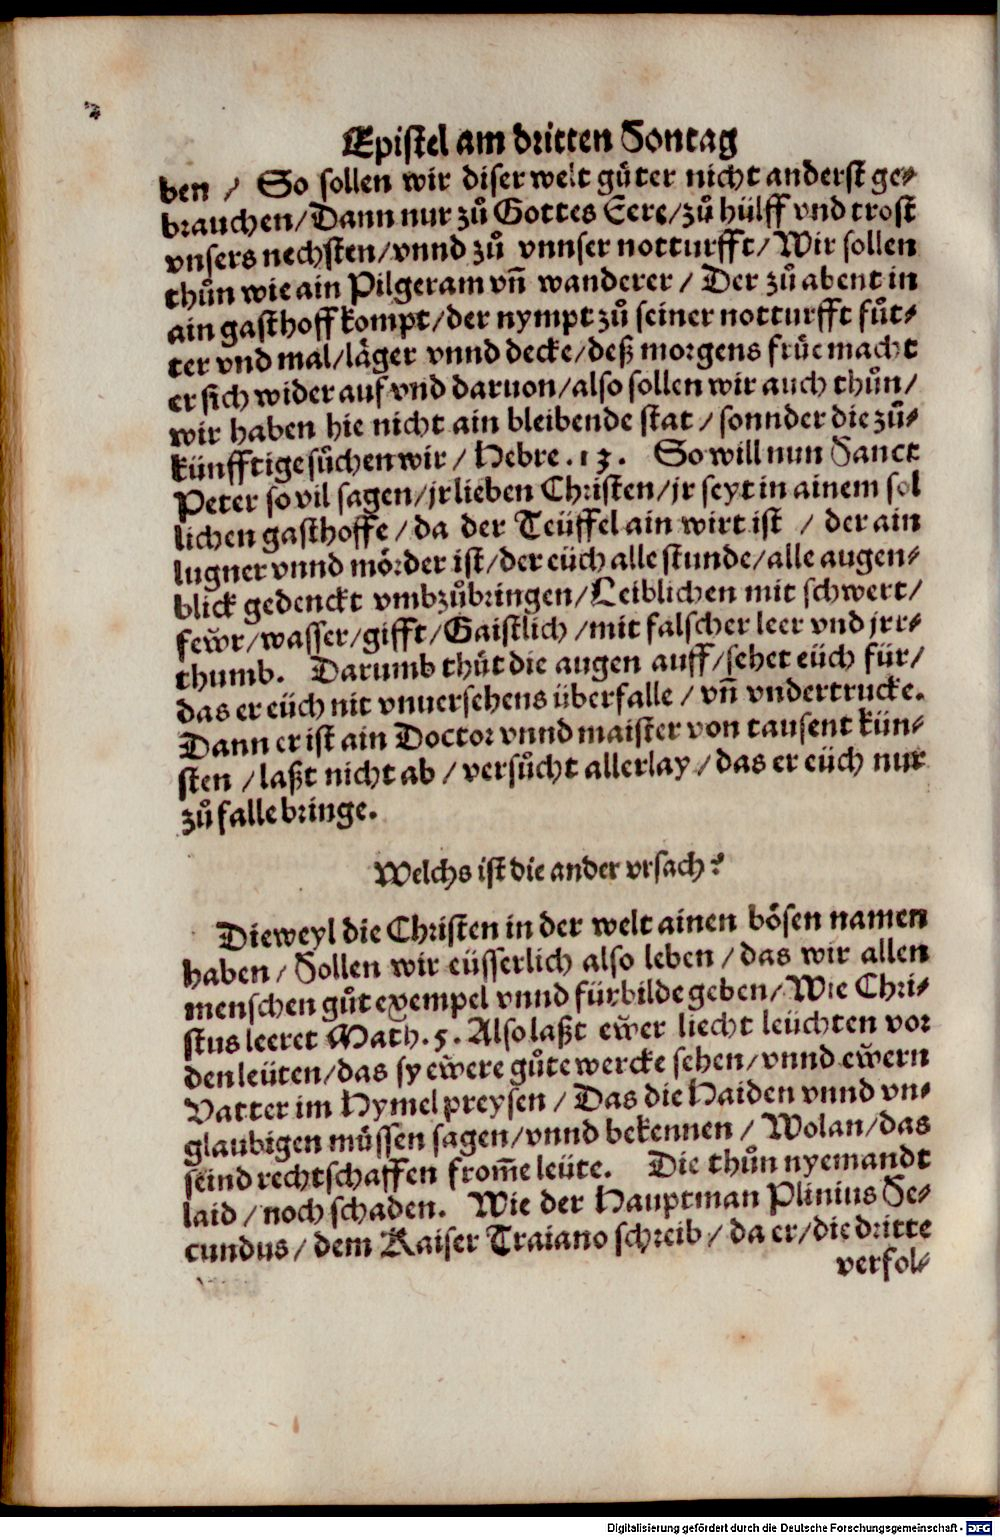 Epistel am dritten Sontag
ben / So sollen wir diser welt güter nicht anderst ge-
brauchen/Dann nur zů Gottes Eere/zů hülff vnd trost
vnsers nechsten/vnnd zů vnnser notturfft/Wir sollen
thůn wie ain Pilgeram vñ wanderer / Der zů abent in
ain gasthoff kompt/der nympt zů seiner notturfft fůt-
ter vnd mal/läger vnnd decke/deß morgens früe macht
er sich wider auf vnd daruon/also sollen wir auch thůn/
wir haben hie nicht ain bleibende stat / sonnder die zů-
künfftige sůchen wir / Hebre .13. So will nun Sanct
Peter so vil sagen/jr lieben Christen/jr seyt in ainem sol
lichen gasthoffe / da der Teüffel ain wirt ist / der ain
lugner vnnd mörder ist/der eüch alle stunde/alle augen-
blick gedenckt vmbzůbringen/Leiblichen mit schwert/
feẅr/wasser/gifft/Gaistlich /mit falscher leer vnd jrr-
thumb. Darumb thůt die augen auff/sehet eüch für/
das er eüch nit vnuersehens überfalle / vñ vndertrucke.
Dann er ist ain Doctor vnnd maister von tausent kün-
sten / laßt nicht ab / versůcht allerlay / das er eüch nur
zů falle bringe.
Welchs ist die ander vrsach?
Dieweyl die Christen in der welt ainen bösen namen
haben / Sollen wir eüsserlich also leben / das wir allen
menschen gůt exempel vnnd fürbilde geben/Wie Chri-
stus leeret Math. 5. Also laßt eẅer liecht leüchten vor
den leüten/das sy eẅere gůte wercke sehen/vnnd eẅern
Vatter im Hymel preysen / Das die Haiden vnnd vn-
glaubigen müssen sagen/vnnd bekennen / Wolan/das
seind rechtschaffen from̃e leüte. Die thůn nyemandt
laid / noch schaden. Wie der Hauptman Plinius Se-
cundus / dem Kaiser Traiano schreib / da er/die dritte
verfol-
Digitalisierung gefördert durch die Deutsche Forschungsgemeinschaft - DFG